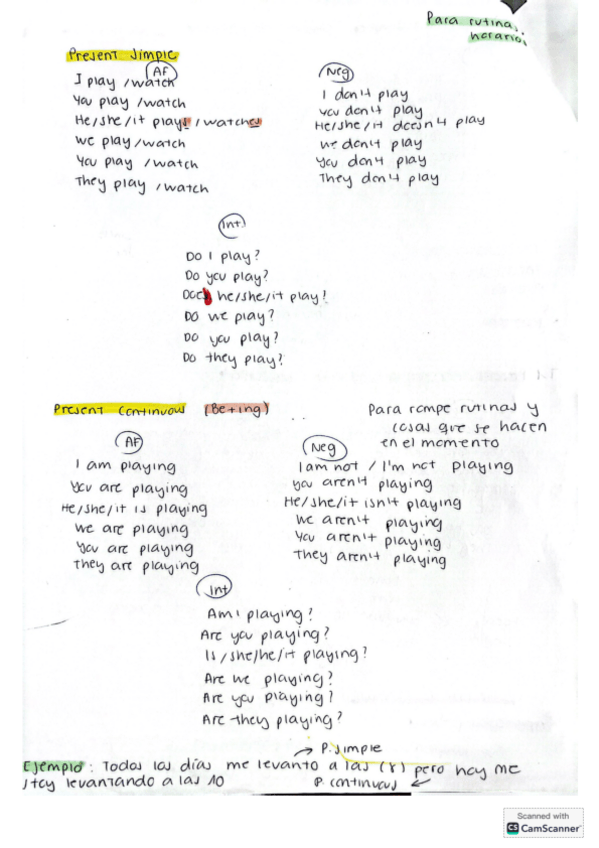 Para rutina,
horario,
Present Simple
AF
I play /watch
You play /watch
He/she/it plays /watches
We play /watch
You play /watch
They play /watch
Neg
I don't play
you don't play
He/she/it doesn't play
we don't play
You don't play
They don't play
Int.
Do I play?
Do you play?
Does he/she/it play?
Do we play?
Do you play?
Do they play?
Present Continuous (Be+ing)
Para rompe rutinas y
cosas que se hacen
en el momento
AF
I am playing
You are playing
He/she/it is playing
We are playing
You are playing
They are playing
Neg
I am not / I'm not playing
you aren't playing
He/she/it isn't playing
We aren't playing
You aren't playing
They aren't playing
Int
Am I playing?
Are you playing?
Is /she/he/it playing?
Are we playing?
Are you playing?
Are they playing?
→ P. Simple
Ejemplo: Todos los días me levanto a las pero hoy me
stoy levantando a las 10
P. continuous ←
Scanned with
CS CamScanner